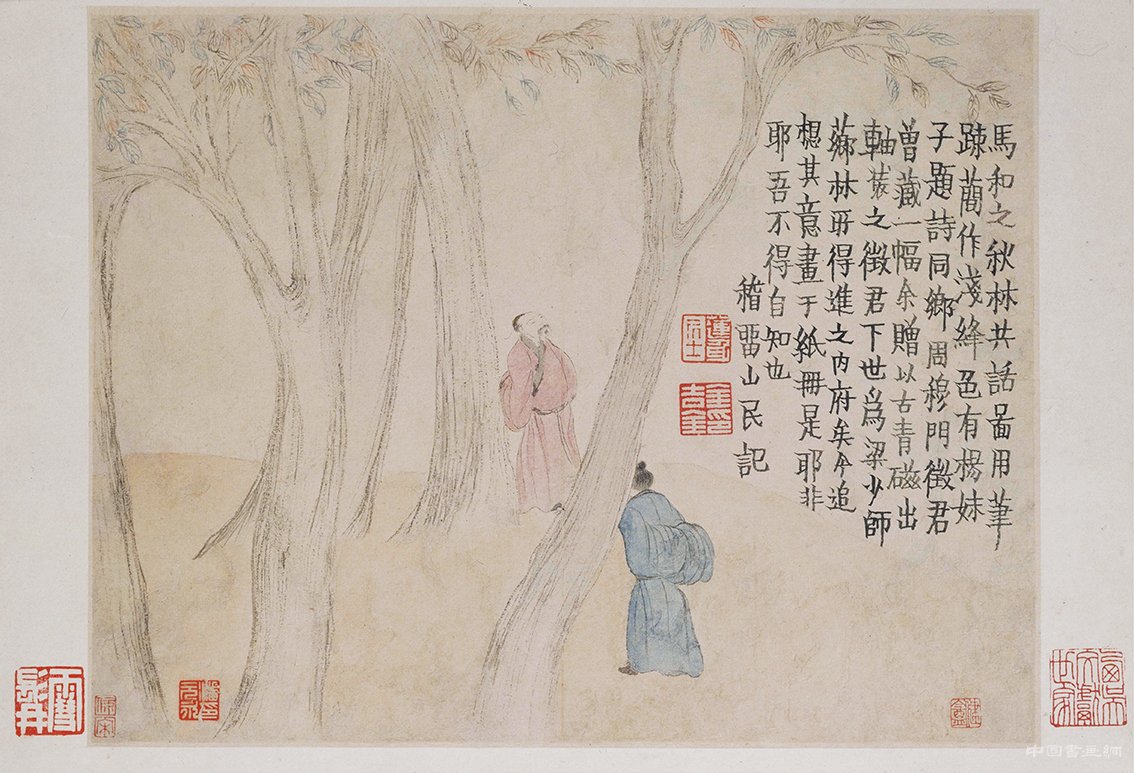 馬和之秋林共話啚用筆
踈蕳作淺絳色有楊妹
子題詩同鄉周穆門徵君
曾藏一幅余贈以古青磁出
軸裝之徵君下世爲梁少師
薌林所得進之内府矣今追
想其意畫于紙冊是耶非
耶吾不得自知也
稽畱山民記
蓮身居士
文獻世家
中国書画網